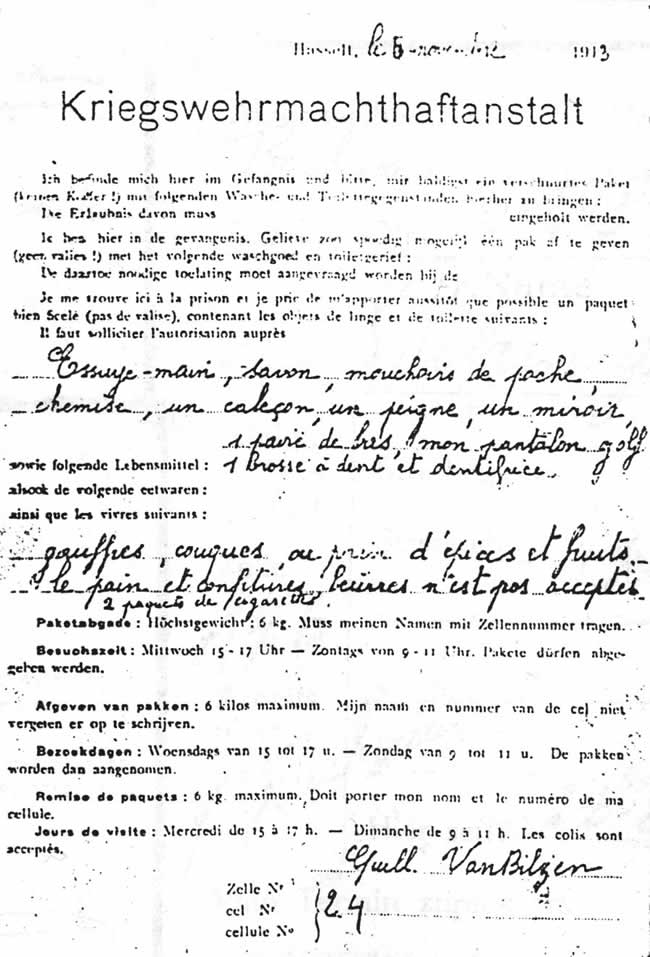 Hasselt, le 5 novembre 1943
Kriegswehrmachthaftanstalt
Ich befinde mich hier im Gefangnis und bitte, mir baldigst ein verschnurtes Paket
(keinen Koffer !) mit folgenden Wasche- und Toilettegegenstanden hierher zu bringen :
Die Erlaubnis davon muss eingeholt werden.
Ik ben hier in de gevangenis. Gelieve zoo spoedig mogelijk één pak af te geven
(geen valies !) met het volgende waschgoed en toiletgerief :
De daartoe noodige toelating moet aangevraagd worden bij de
Je me trouve ici à la prison et je prie de m'apporter aussitôt que possible un paquet
bien Scelé (pas de valise), contenant les objets de linge et de toilette suivants :
Il faut solliciter l'autorisation auprès
Essuye-main, savon, mouchoirs de poche,
chemise, un caleçon, un peigne, un miroir,
1 paire de bas, mon pantalon golf
sowie folgende Lebensmittel : 1 brosse à dent et dentifrice.
alsook de volgende eetwaren :
ainsi que les vivres suivants :
gauffres, couques, ou pain d'épices et fruits.
le pain et confitures, beurres n'est pas acceptés
2 paquets de cigarettes.
Paketabgabe : Höchstgewicht : 6 kg. Muss meinen Namen mit Zellennummer tragen.
Besuchszeit : Mittwoch 15 - 17 Uhr — Zontags von 9 - 11 Uhr. Pakete dürfen abge-
geben werden.
Afgeven van pakken : 6 kilos maximum. Mijn naam en nummer van de cel niet
vergeten er op te schrijven.
Bezoekdagen : Woensdags van 15 tot 17 u. — Zondag van 9 tot 11 u. De pakken
worden dan aangenomen.
Remise de paquets : 6 kg. maximum. Doit porter mon nom et le numéro de ma
cellule.
Jours de visite : Mercredi de 15 à 17 h. — Dimanche de 9 à 11 h. Les colis sont
acceptés.
Guill. VanBilzen
Zelle Nr
cel Nr 24
cellule No